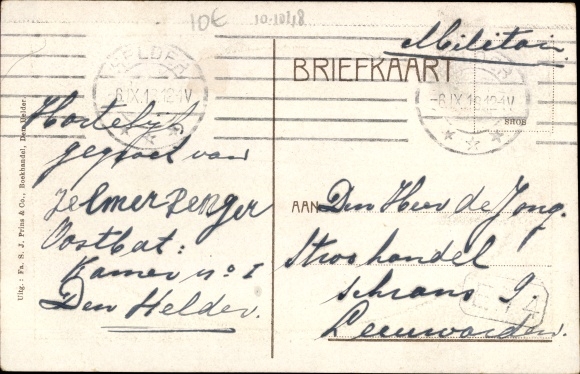 10€ 10-10/18
Militair.
HELDER
-6.IX.18.12-1V
BRIEFKAART
-6.IX.18.12-1V
Hartelijk
gegroet van
Jelmer Benger
Oostbat:
Kamer no I
Den Helder.
AAN Den Heer de Jong.
Stroohandel
Schrans 9.
Leeuwarden.
Uitg.: Fa. S. J. Prins & Co., Boekhandel, Den Helder.